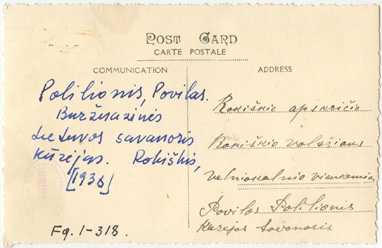 POST CARD
CARTE POSTALE
COMMUNICATION
ADDRESS
Polilionis, Povilas.
Buržuazinės
Lietuvos savanoris
kūrėjas. Rokiškis,
[1936]
Fg. 1-318.
Rokiškio apskričio
Rokiškio valsčiaus
Povilas Polilionis
Kurejas Savanoris